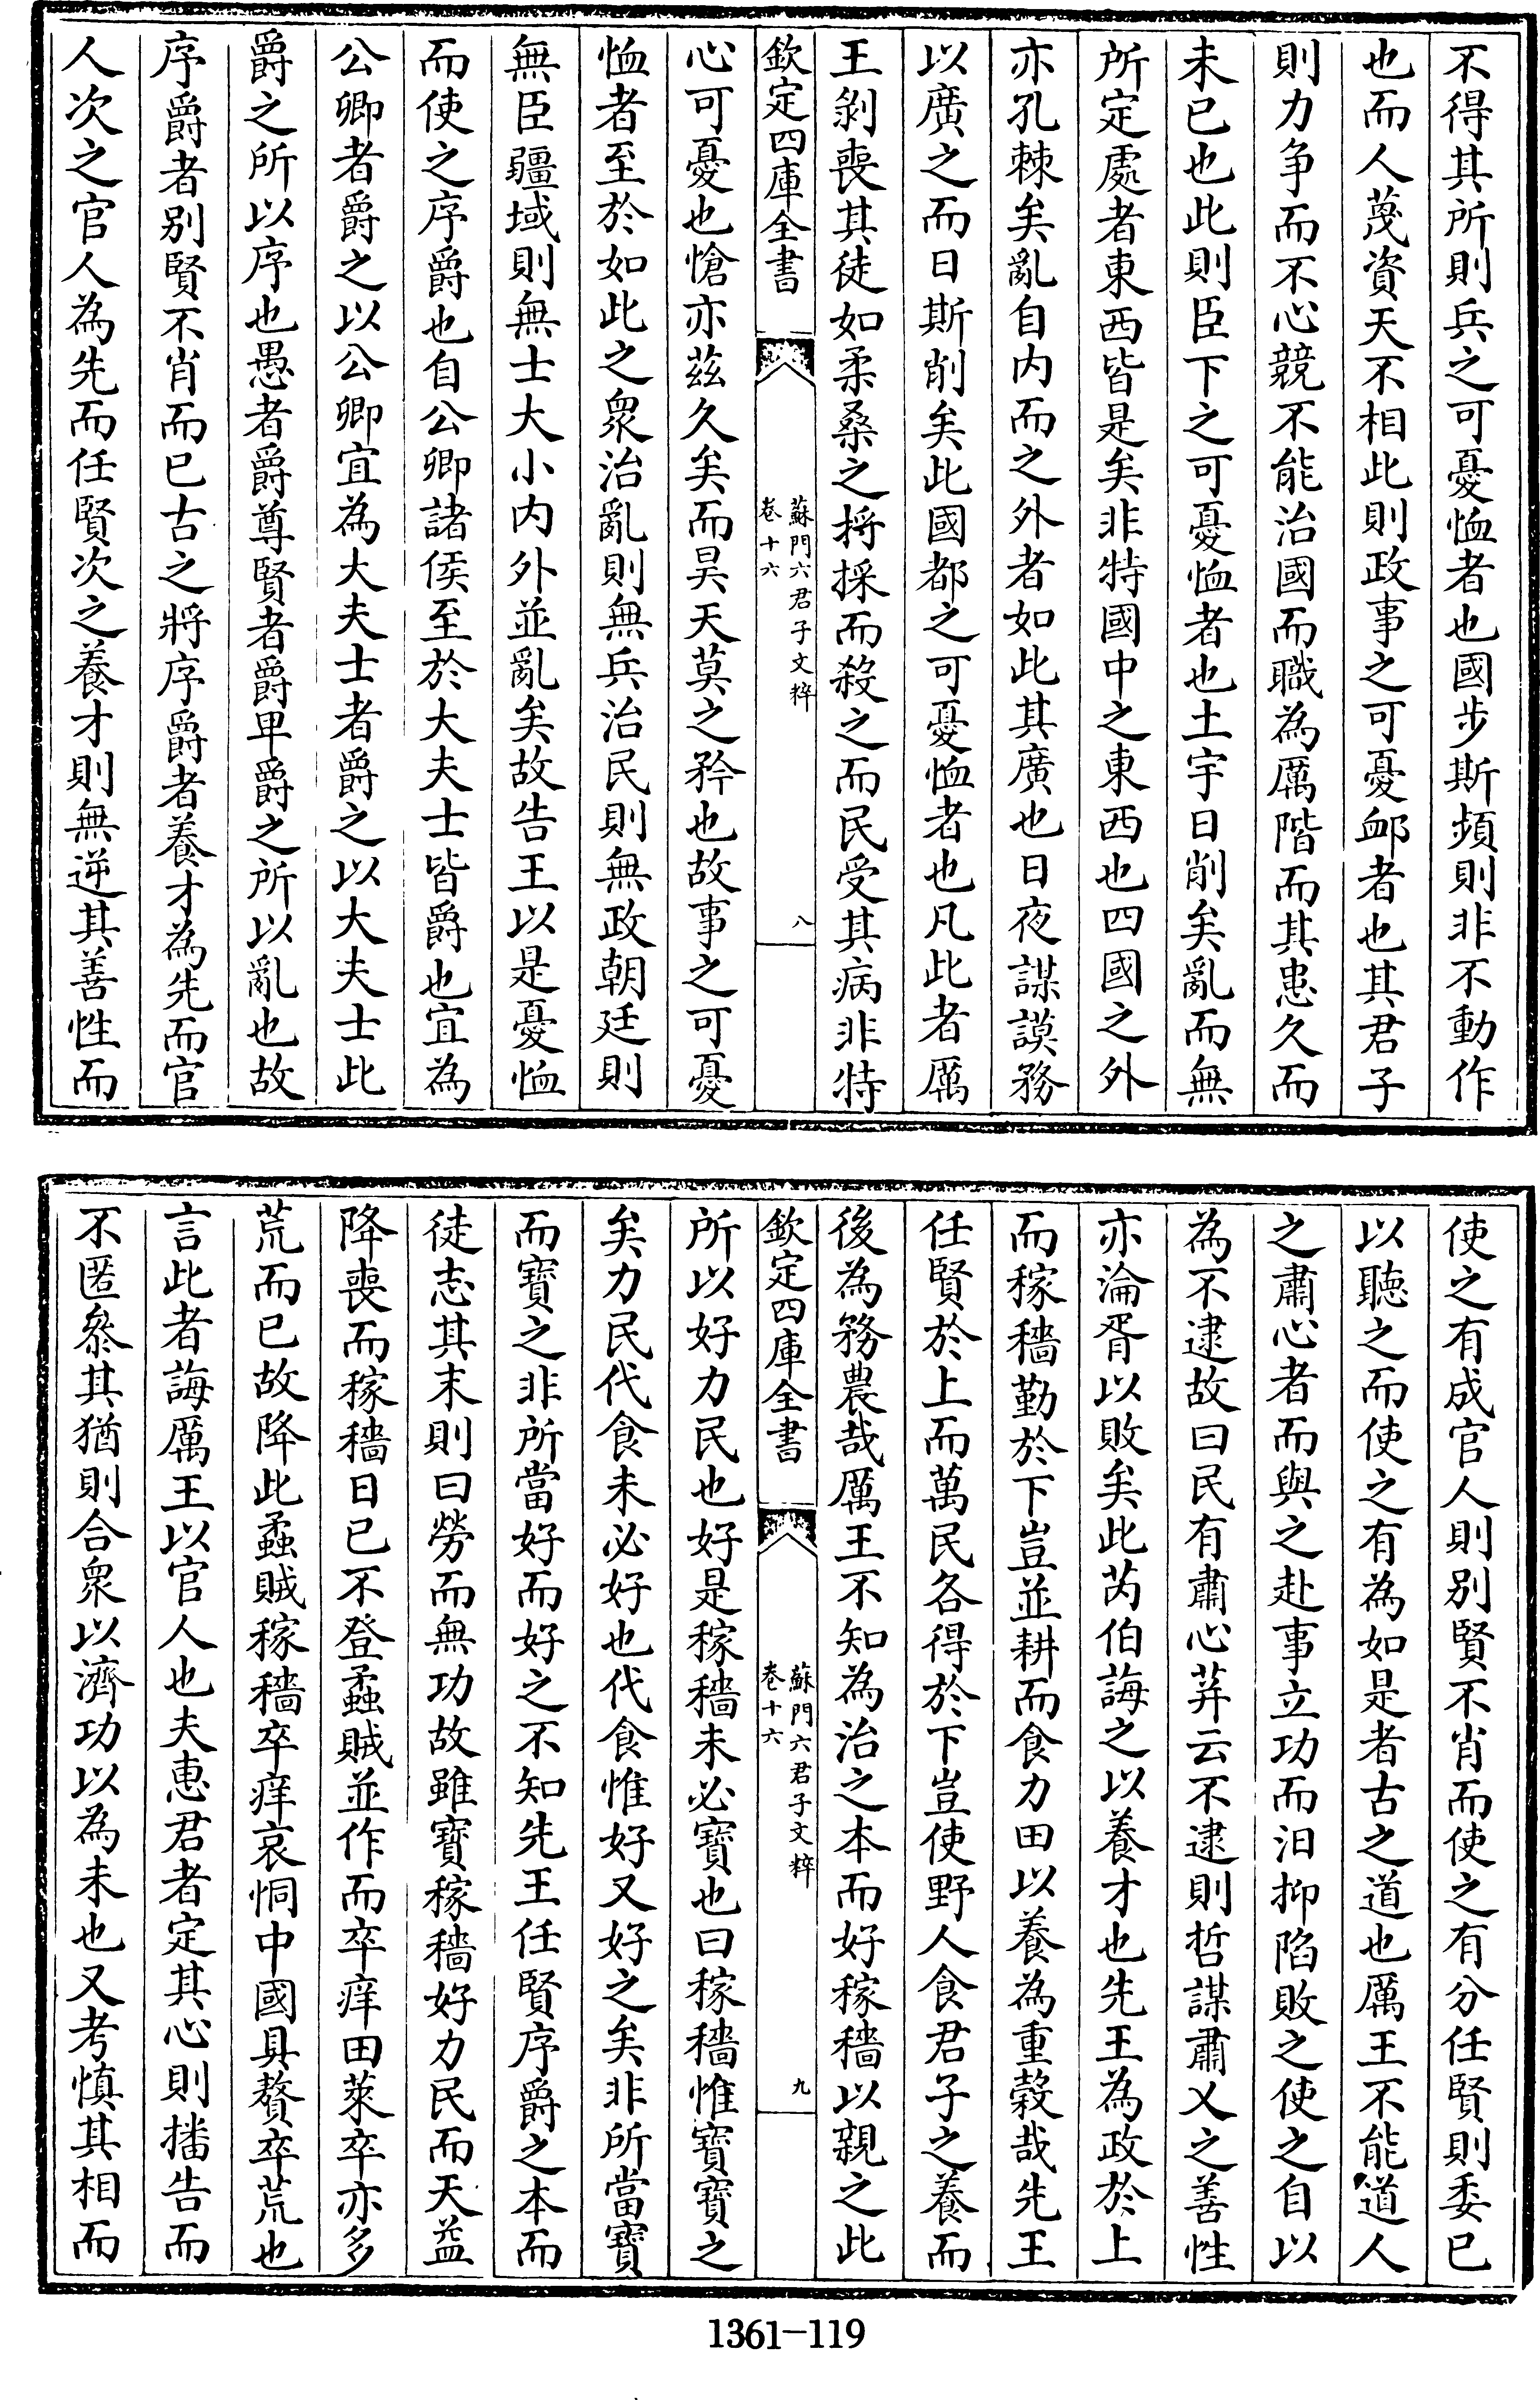 不得其所則兵之可憂恤者也國步斯頻則非不動作
也而人蔑資天不相此則政事之可憂䘏者也其君子
則力争而不心競不能治國而職為厲階而其患久而
未已也此則臣下之可憂恤者也土宇日削矣亂而無
所定處者東西皆是矣非特國中之東西也四國之外
亦孔棘矣亂自内而之外者如此其廣也日夜謀謨務
以廣之而日斯削矣此國都之可憂恤者也凡此者厲
王剥喪其徒如柔桑之捋採而殺之而民受其病非特
欽定四庫全書
蘇門六君子文粹
卷十六
八
心可憂也愴亦茲久矣而昊天莫之矜也故事之可憂
恤者至於如此之衆治亂則無兵治民則無政朝廷則
無臣疆域則無士大小内外並亂矣故告王以是憂恤
而使之序爵也自公卿諸侯至於大夫士皆爵也宜為
公卿者爵之以公卿宜為大夫士者爵之以大夫士此
爵之所以序也愚者爵尊賢者爵卑爵之所以亂也故
序爵者别賢不肖而已古之將序爵者養才為先而官
人次之官人為先而任賢次之養才則無逆其善性而
使之有成官人則别賢不肖而使之有分任賢則委已
以聽之而使之有為如是者古之道也厲王不能道人
之肅心者而與之赴事立功而汨抑陷敗之使之自以
為不逮故曰民有肅心荓云不逮則哲謀肅乂之善性
亦淪胥以敗矣此芮伯誨之以養才也先王為政於上
而稼穡勤於下豈並耕而食力田以養為重穀哉先王
任賢於上而萬民各得於下豈使野人食君子之養而
後為務農哉厲王不知為治之本而好稼穡以親之此
欽定四庫全書
蘇門六君子文粹
卷十六
九
所以好力民也好是稼穡未必寶也曰稼穡惟寶寶之
矣力民代食未必好也代食惟好又好之矣非所當寶
而寶之非所當好而好之不知先王任賢序爵之本而
徒志其末則曰勞而無功故雖寶稼穡好力民而天益
降喪而稼穡日已不登蟊賊並作而卒痒田萊卒亦多
荒而已故降此蟊賊稼穡卒痒哀恫中國具贅卒荒也
言此者誨厲王以官人也夫惠君者定其心則播告而
不匿叅其猶則合衆以濟功以為未也又考慎其相而
1361-119